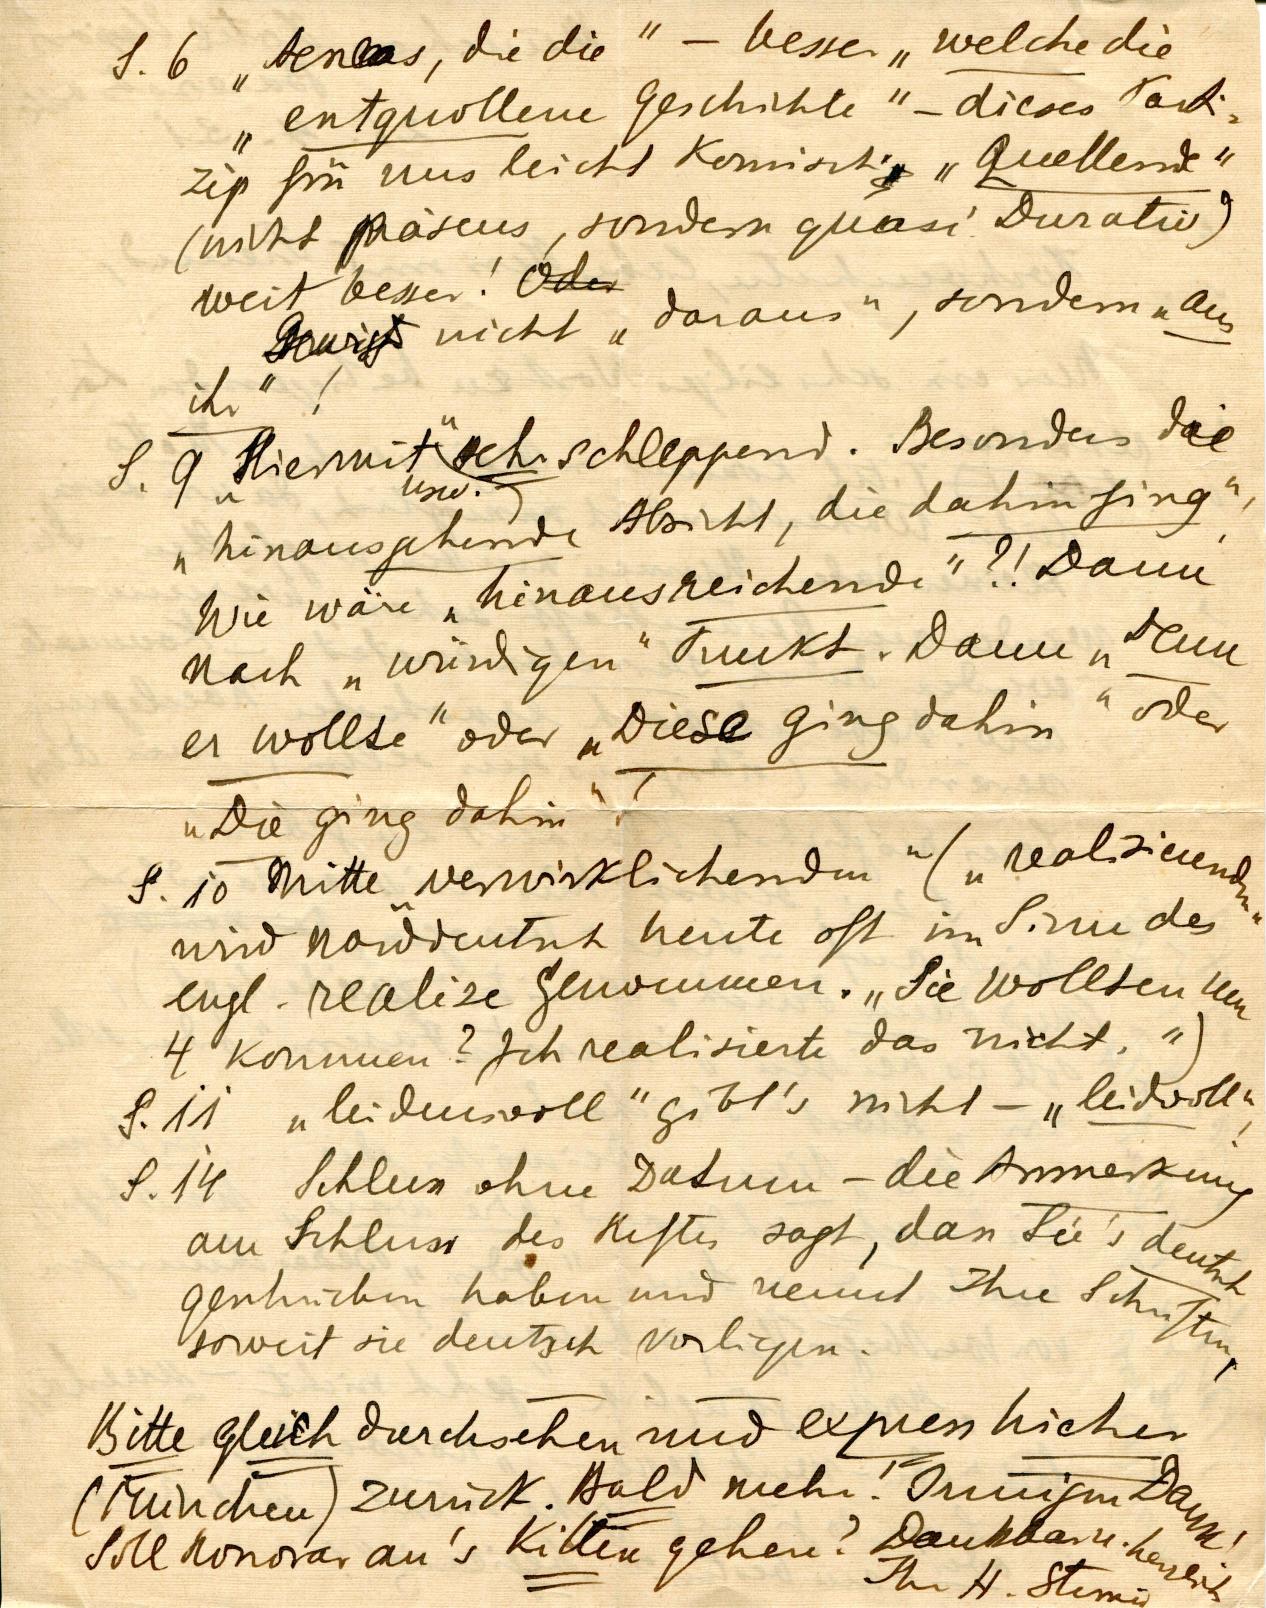 S. 6 „Aeneas, die die" – besser „welche die
„entquollene Geschichte" – dieses Parti-
zip für uns leicht komisch; „Quellende"
(nicht Präsens, sondern quasi Durativ)
weit besser! Oder
nicht „daraus", sondern „aus
ihr"!
S. 9 „Hiermit" usw. sehr schleppend. Besonders die
„hinausgehende Absicht, die dahin ging",
Wie wäre „hinausreichende"?! Dann
nach „würdigen" Punkt. Dann „Denn
er wollte" oder „Diese ging dahin" oder
„Die ging dahin"!
S. 10 Mitte „verwirklichenden" („realisierenden"
wird norddeutsch heute oft im Sinne des
engl. realize genommen. „Sie wollten um
4 kommen? Ich realisierte das nicht.")
S. 11 „leidensvoll" gibt's nicht – „leidvoll"!
S. 14 Schluss ohne Datum – die Anmerkung
am Schluss des Heftes sagt, dass Sie's deutsch
geschrieben haben und nennt Ihre Schriften,
soweit sie deutsch vorliegen.
Bitte gleich durchsehen und express hierher
(München) zurück. Bald mehr! Innigen Dank!
Soll Honorar an's Kitten gehen? Dankbar u. herzlich
Ihr H.